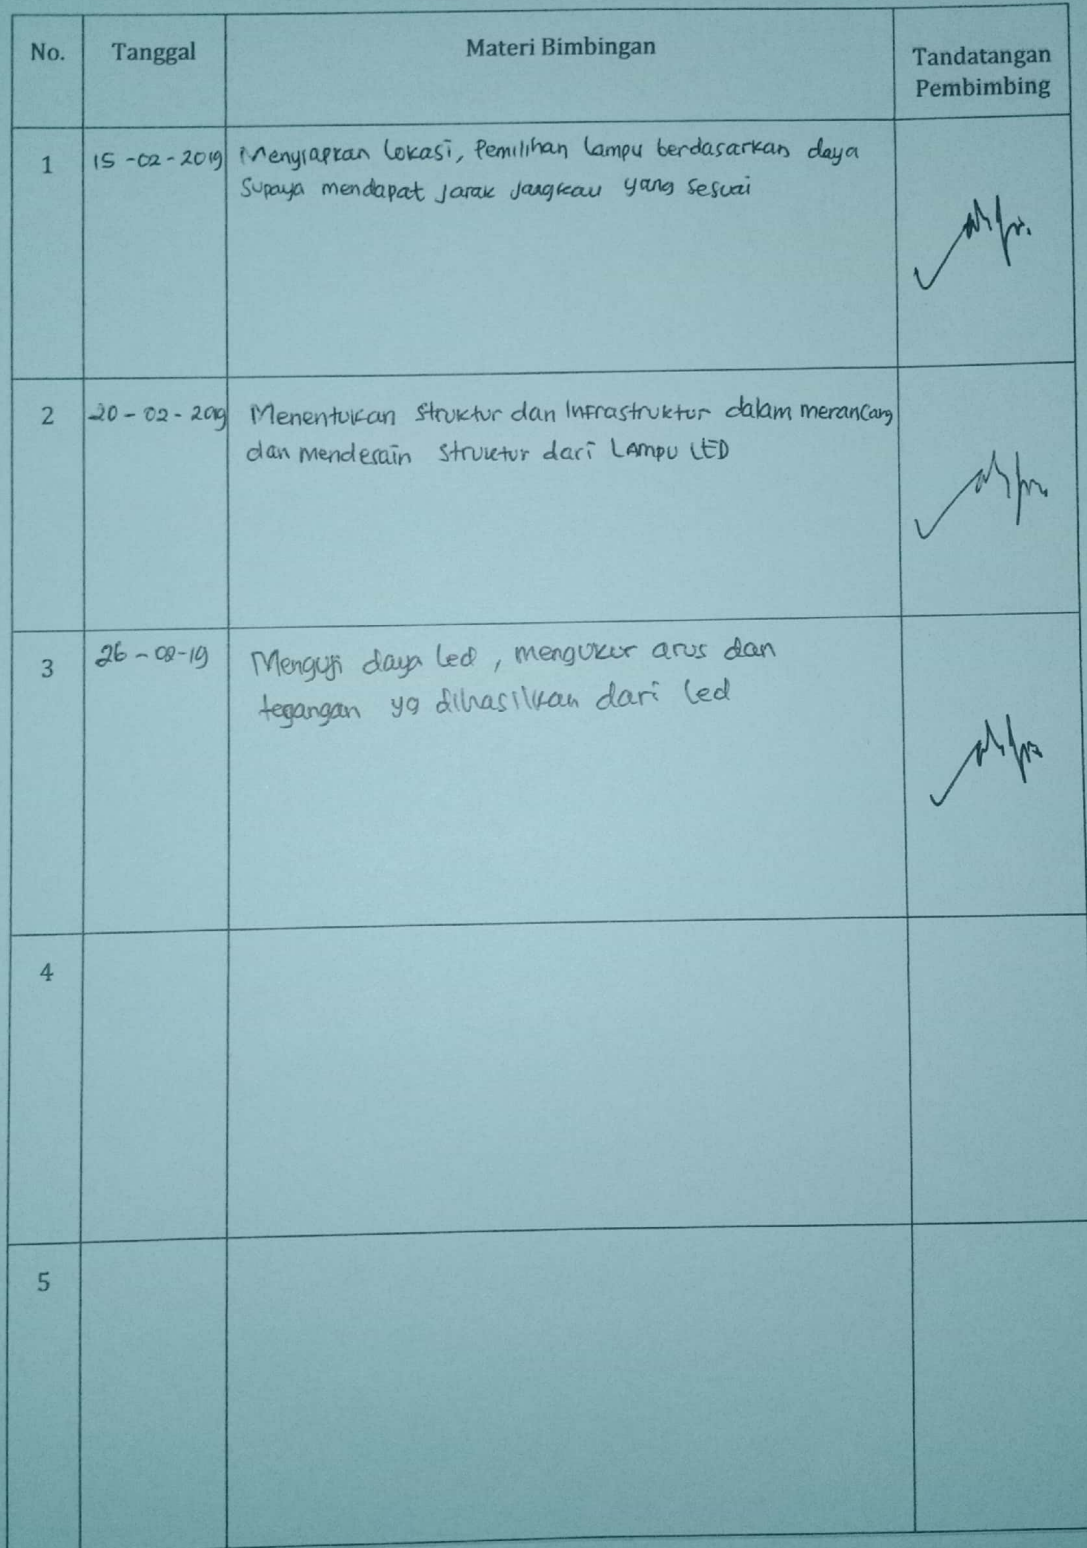 No. Tanggal Materi Bimbingan Tandatangan
Pembimbing
1 15-02-2019 Menyiapkan lokasi, Pemilihan lampu berdasarkan daya
Supaya mendapat jarak jangkau yang sesuai
2 20-02-2019 Menentukan struktur dan Infrastruktur dalam merancang
dan mendesain struktur dari LAmpu LED
3 26-02-19 Menguji daya led, mengukur arus dan
tegangan yg dihasilkan dari led
4
5